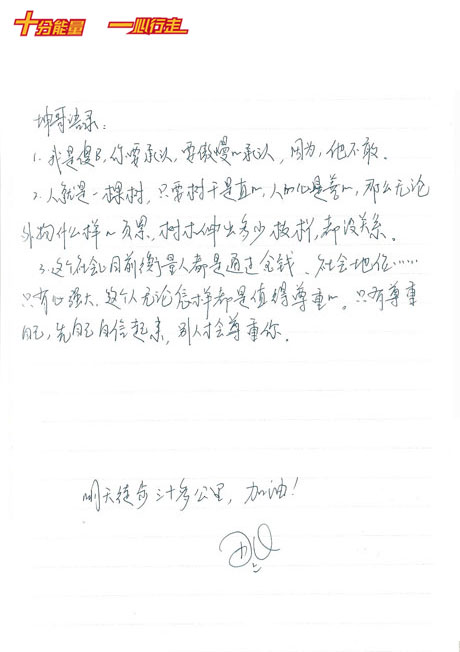 十分能量 一心行走
坤哥语录：
1. 我是傻B，你要承认，要傲慢的承认，因为，他不敢．
2. 人就是一棵树，只要树干是直的，人的心是善的，那么无论
外物什么样的页果，树木伸出多少枝桠，都没关系。
3. 这个社会目前衡量人都是通过金钱、社会地位……
只有心强大，这个人无论怎样都是值得尊重的。只有尊重
自己，先自己自信起来，别人才会尊重你．
明天徒步三十多公里，加油！